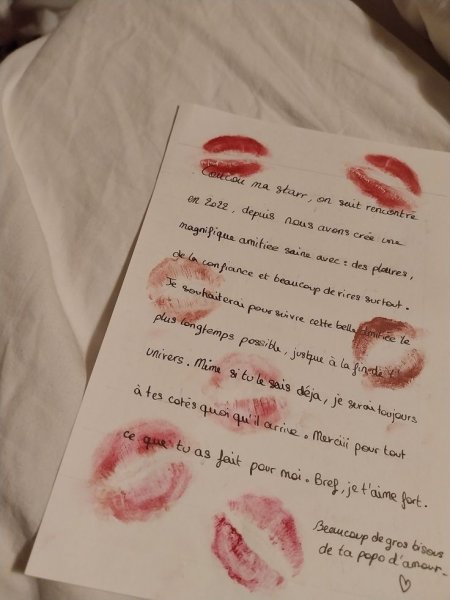 Coucou ma starr, on sait rencontré
en 2022, depuis nous avons crée une
magnifique amitiée saine avec : des pleures,
de la confiance et beaucoup de rires surtout.
Je souhaiterai poursuivre cette belle amitiée le
plus longtemps possible, jusque à la fin de l'
univers. Même si tu le sais déja, je serai toujours
à tes cotés quoi qu'il arrive. Merciii pour tout
ce que tu as fait pour moi. Bref, je t'aime fort.
Beaucoup de gros bisous
de ta popo d'amour.